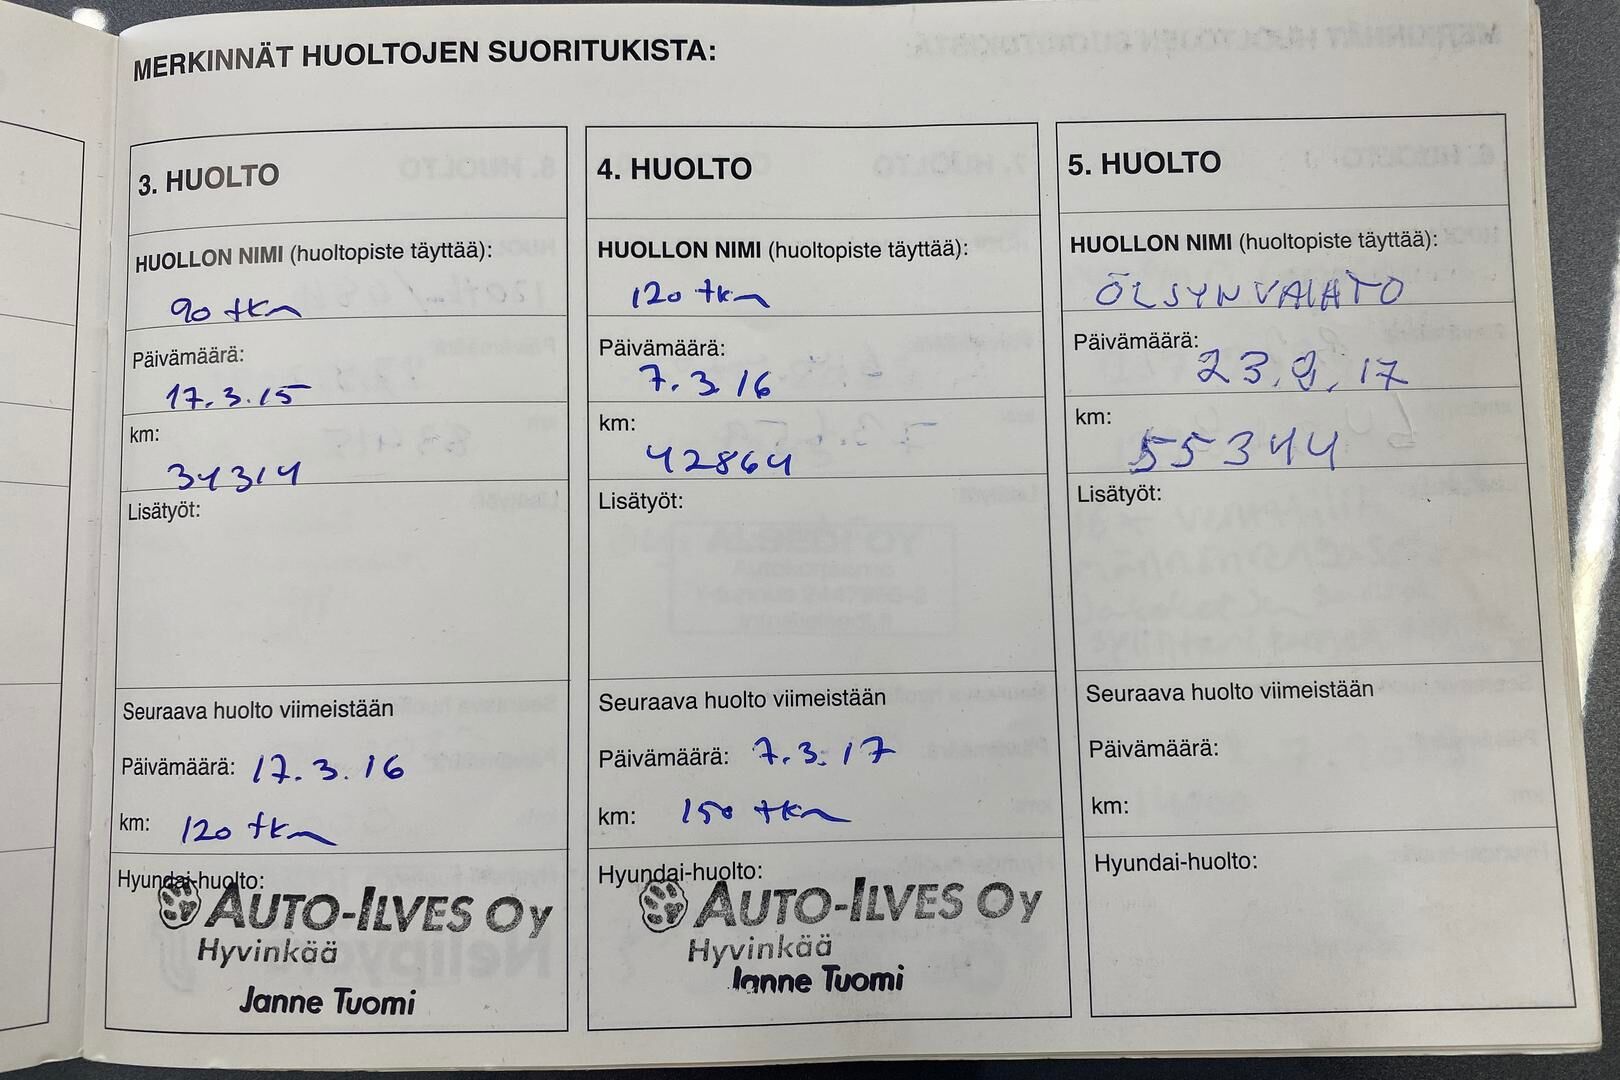 MERKINNÄT HUOLTOJEN SUORITUKISTA:
3. HUOLTO
HUOLLON NIMI (huoltopiste täyttää):
90 tkm
Päivämäärä:
17.3.15
km:
34314
Lisätyöt:
Seuraava huolto viimeistään
Päivämäärä: 17.3.16
km: 120 tkm
Hyundai-huolto:
AUTO-ILVES OY
Hyvinkää
Janne Tuomi
4. HUOLTO
HUOLLON NIMI (huoltopiste täyttää):
120 tkm
Päivämäärä:
7.3 16
km:
42864
Lisätyöt:
Seuraava huolto viimeistään
Päivämäärä: 7.3.17
km: 150 tkm
Hyundai-huolto:
AUTO-ILVES OY
Hyvinkää
Janne Tuomi
5. HUOLTO
HUOLLON NIMI (huoltopiste täyttää):
ÖLJYNVAIHTO
Päivämäärä:
23.9.17
km:
55344
Lisätyöt:
Seuraava huolto viimeistään
Päivämäärä:
km:
Hyundai-huolto: